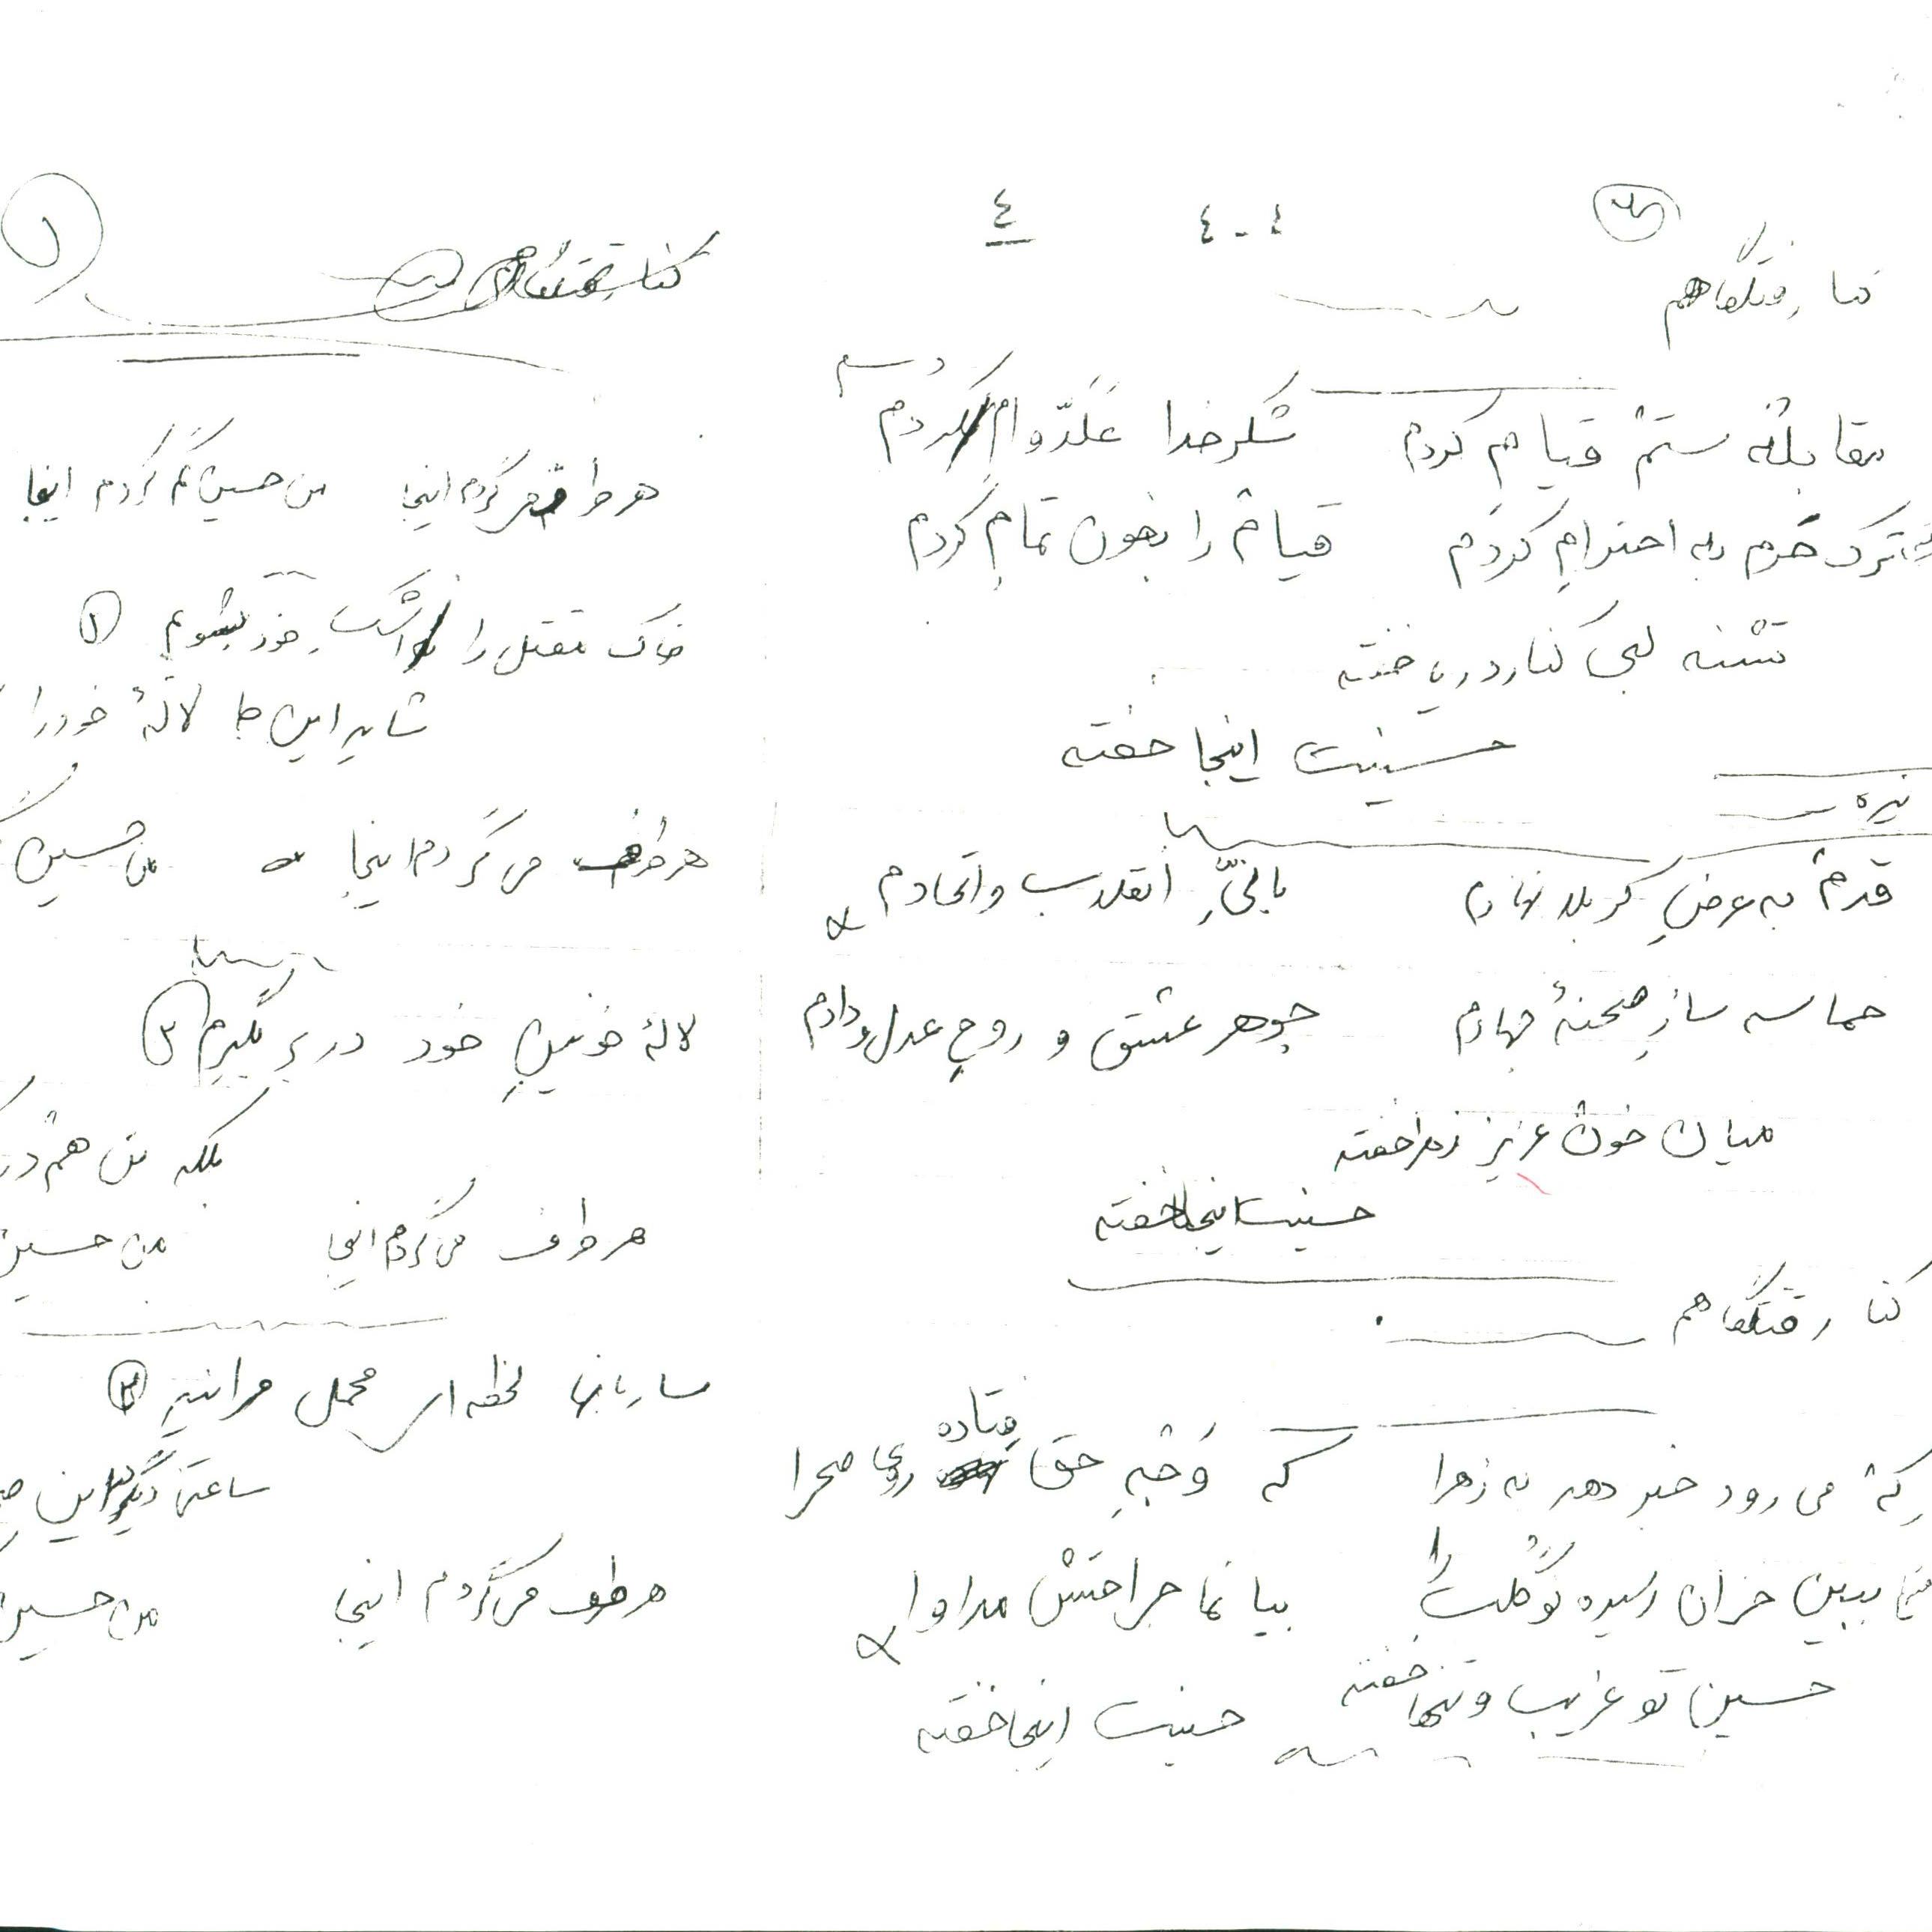 ٤
٤٠٤
کنار قتلگاهم
مقابله ستم قیام کردم شکر خدا
ترک حرم به احترام کردم قیام را بخون تمام کردم
تشنه لبی کنار دریا خفته
حسینت اینجا خفته
قدم به عرض کربلا نهادم بانی انقلاب و اتحادم
حماسه ساز صحنهٔ جهادم جوهر عشق و روح عدل و دادم
میان خون عزیز زهرا خفته
حسینت اینجا خفته
کنار قتلگاهم
که می رود خبر دهد به زهرا که وجه حق فتاده روی صحرا
ببین خزان رسیده نوگلت را بیا نما جراحتش مداوا
حسین تو غریب و تنها خفته حسینت اینجا خفته
کنار قتلگاه
هر طرف می گردم اینجا من حسین گم کردم اینجا
خاک مقتل را اشک خود بشویم ۱
شاید این جا لالهٔ خود را
هر طرف می گردم اینجا من حسین
لالهٔ خونین خود در بر بگیرم ۲
بلکه من هم در
هر طرف می گردم اینجا من حسین
ساربانها لحظه ای محمل مرانید ۳
ساعتی دیگر این
هر طرف می گردم اینجا من حسین